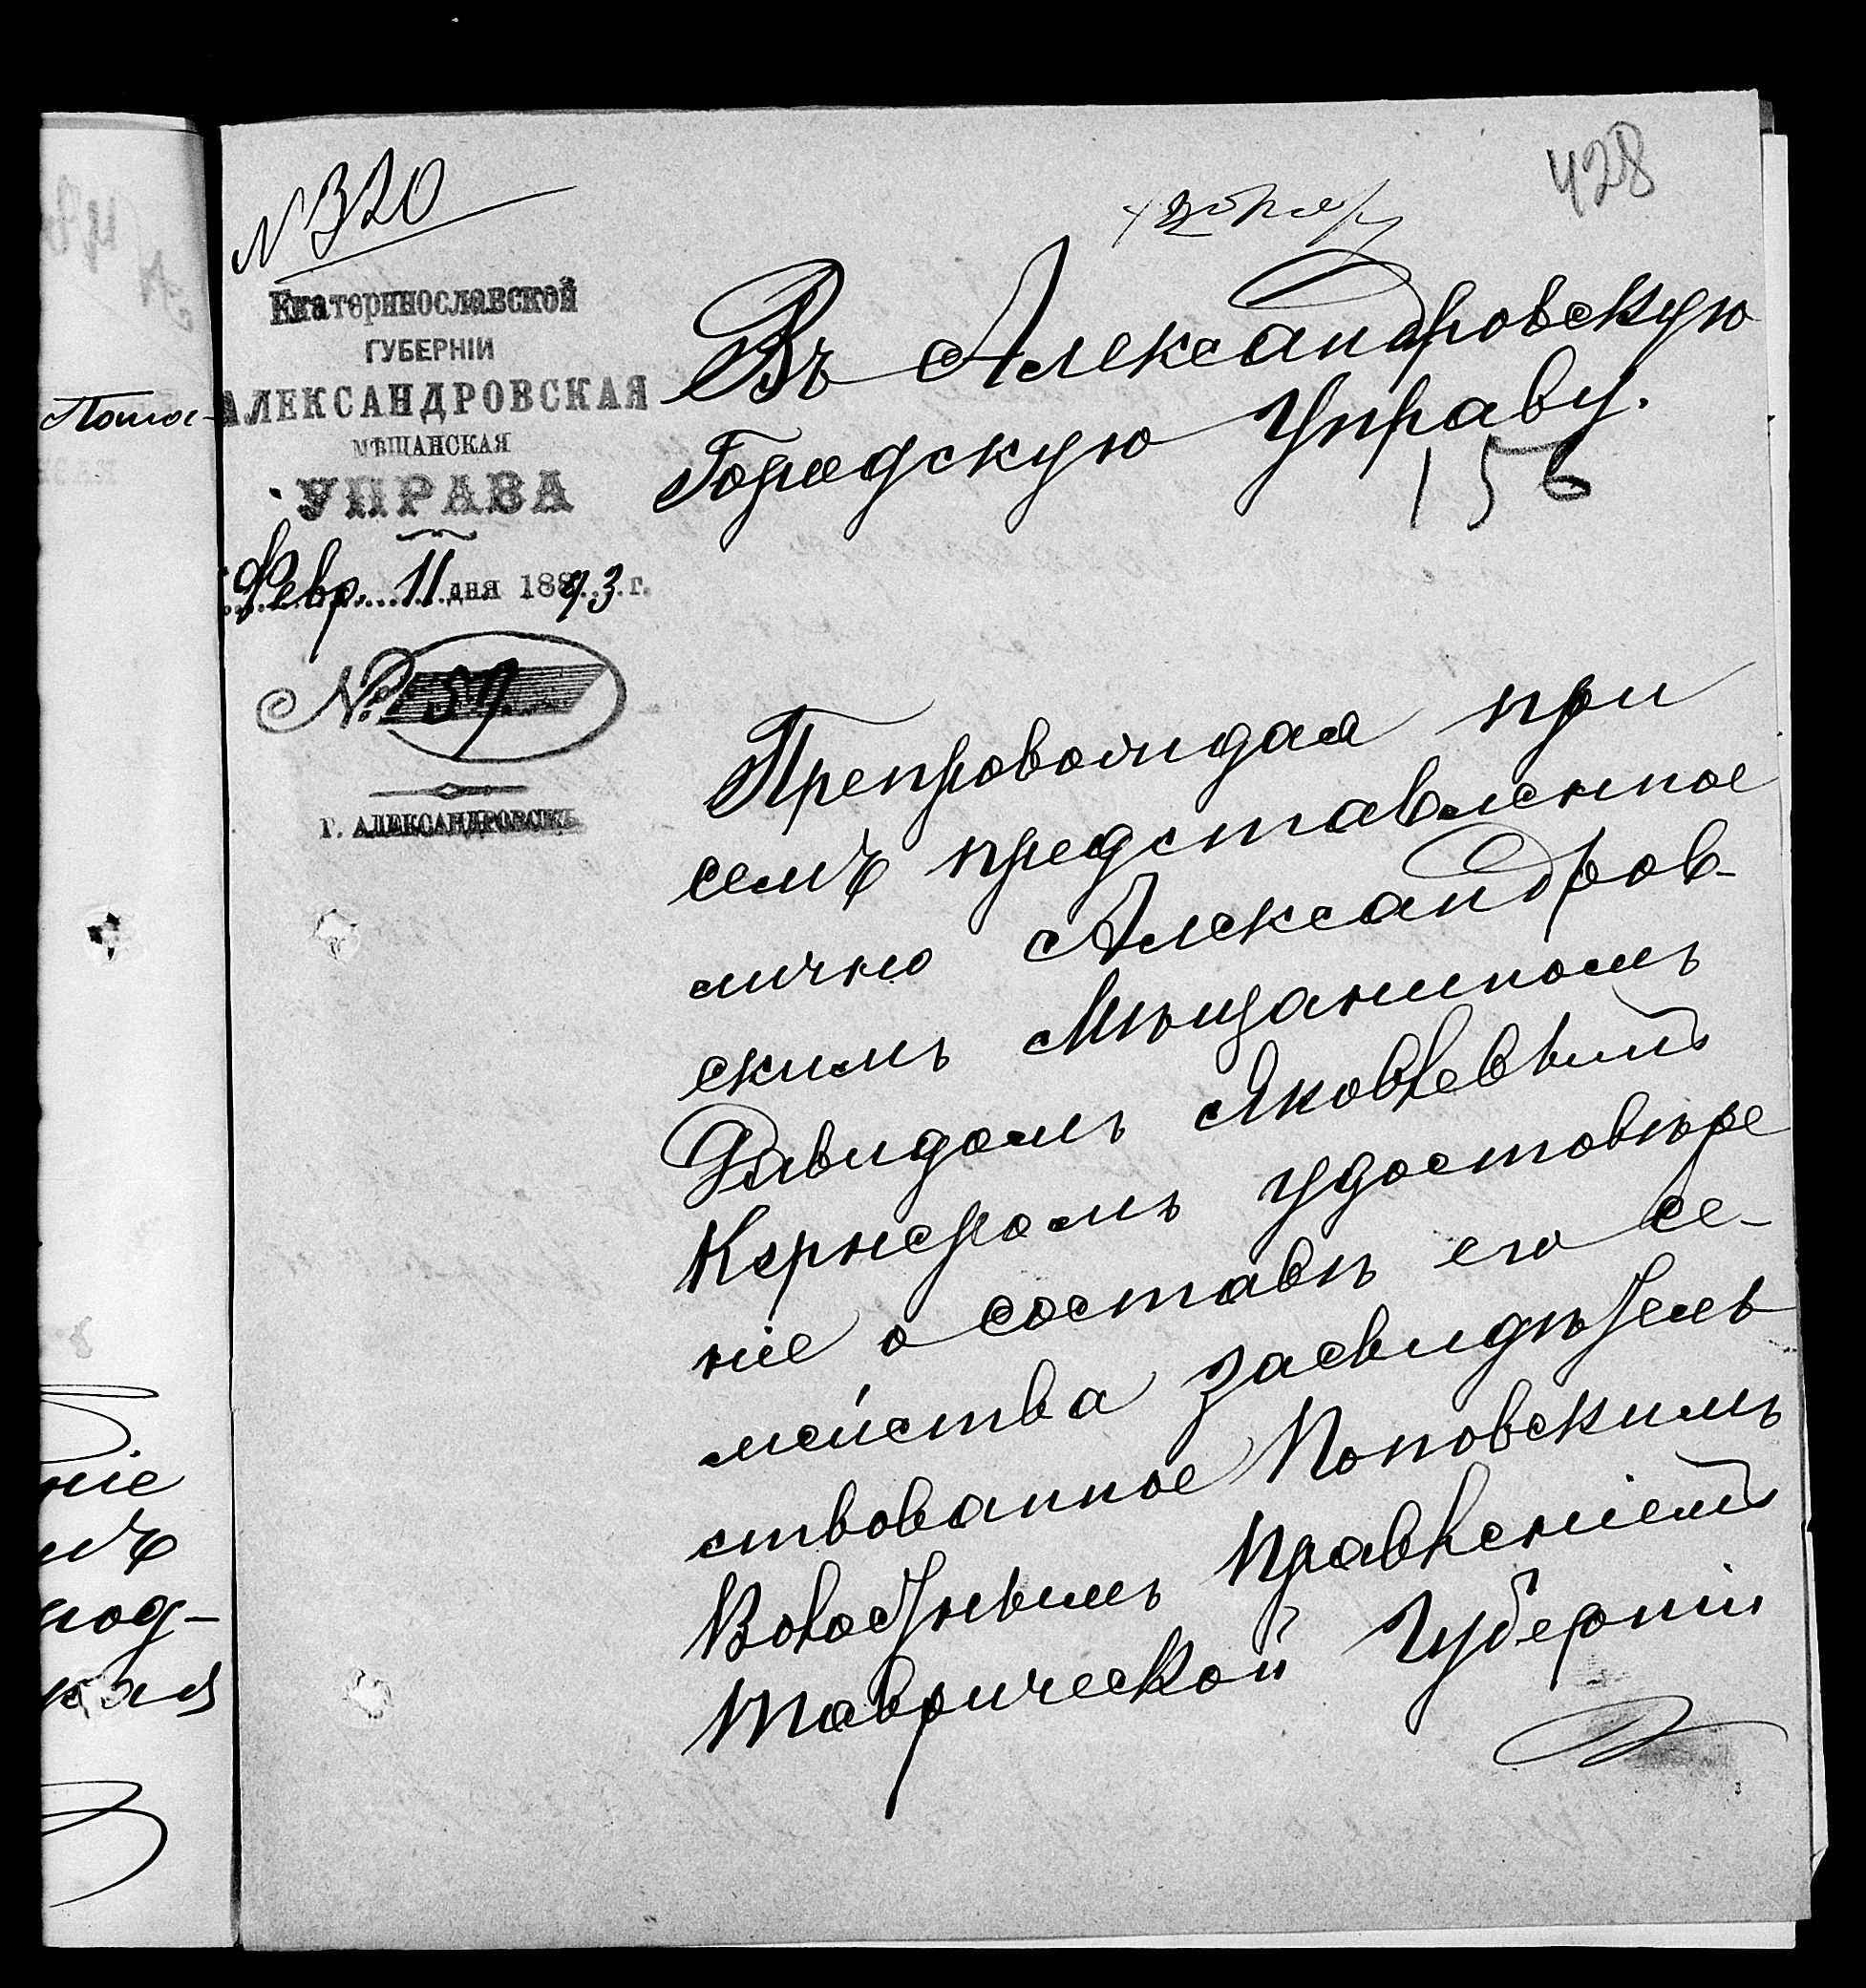 428
№ 320
Екатеринославской
ГУБЕРНІИ
АЛЕКСАНДРОВСКАЯ
МѢЩАНСКАЯ
УПРАВА
Февр. 11 дня 1893 г.
№ 159
Г. АЛЕКСАНДРОВСКЪ
Въ Александровскую
Городскую Управу.
156
Препровождая при
семъ представленное
лично Александров-
скимъ Мѣщаниномъ
Давидомъ Яковлевымъ
Кернеромъ удостовѣре
ніе о составѣ его се-
мейства засвидѣтель
ствованное Поповскимъ
Волостнымъ Правленіемъ
Таврической Губерніи
ніе
мъ
под-